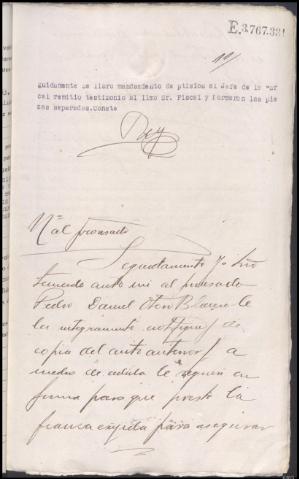 E.3.767.331
guidamente se libro mandamiento de prision al Jefe de la Car
cel remitio testimonio al Ilmo Sr. Fiscal y formaron las pie
zas separadas. Conste
Rey
Nn al procesado
Seguidamente Yo
teniendo ante mi al procesado
Pedro Daniel Oton
lei integramente notifique di
copia del auto anterior y a
medio de cedula le requeri en
forma para que preste la
fianza exigida para asegurar